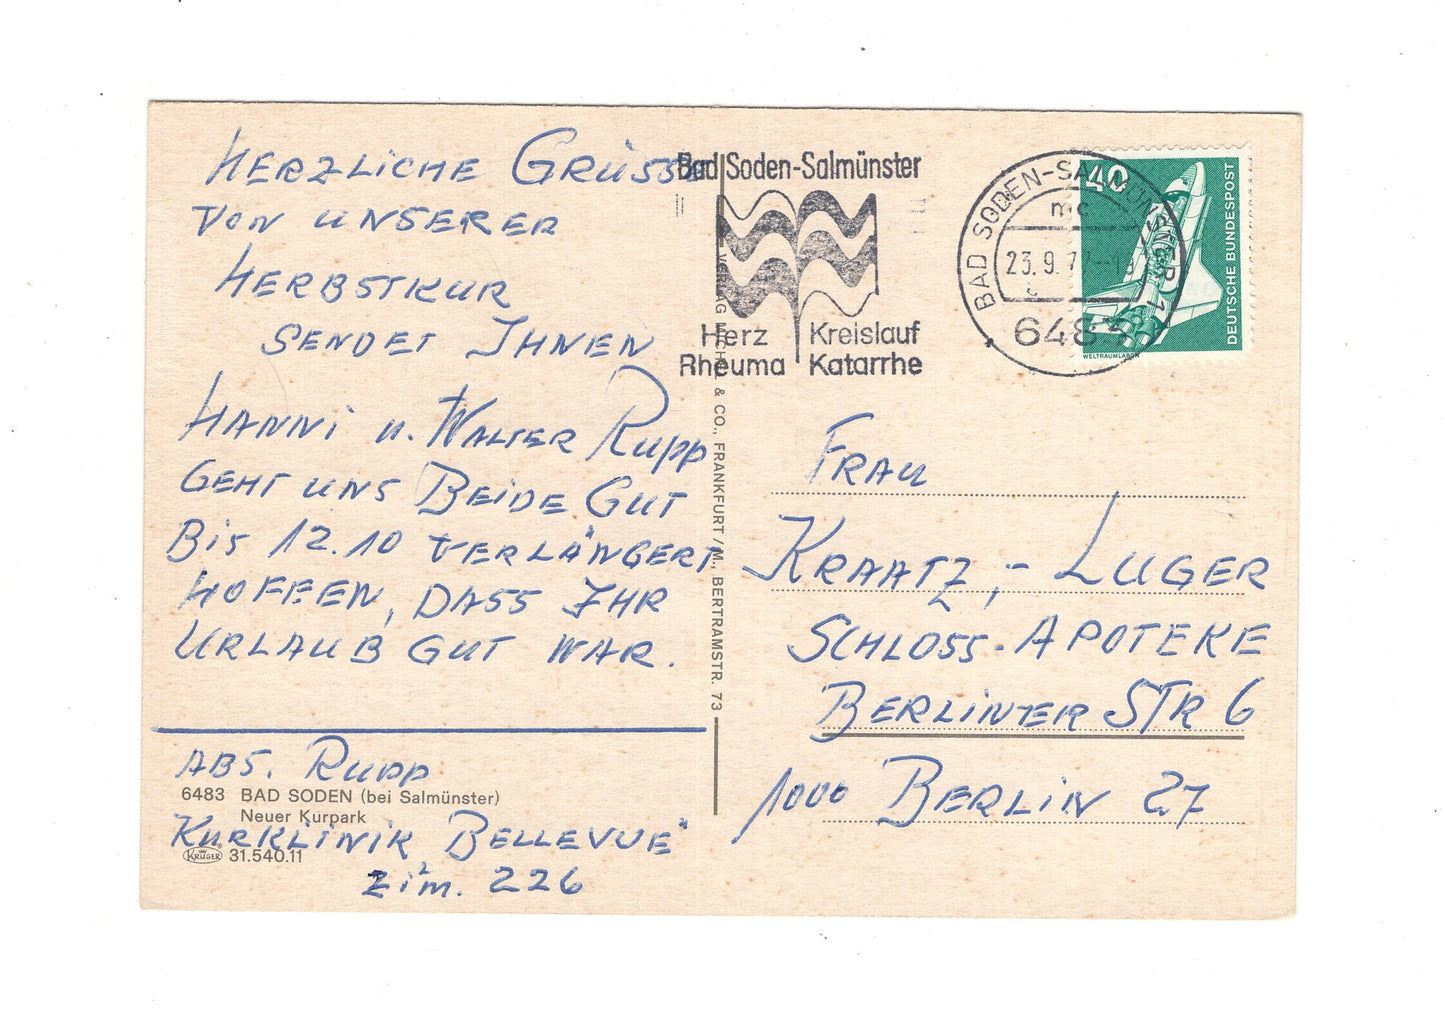 HERZLICHE GRÜSSE
VON UNSERER
HERBSTKUR
SENDET IHNEN
HANNI u. WALTER RUPP
GEHT UNS BEIDE GUT
BIS 12.10 VERLÄNGERT
HOFFEN, DASS IHR
URLAUB GUT WAR.
ABS. RUPP
6483 BAD SODEN (bei Salmünster)
Neuer Kurpark
KURKLINIK BELLEVUE"
KRÜGER 31.540.11
Zim. 226
VERLAG MICHEL & CO., FRANKFURT/M., BERTRAMSTR. 73
Bad Soden-Salmünster
Herz Kreislauf
Rheuma Katarrhe
BAD SODEN-SALMÜNSTER 1
mc
23.9.77-19
6483
40
DEUTSCHE BUNDESPOST
WELTRAUMLABOR
FRAU
KRAATZ,- LUGER
SCHLOSS-APOTEKE
BERLINER STR 6
1000 BERLIN 27